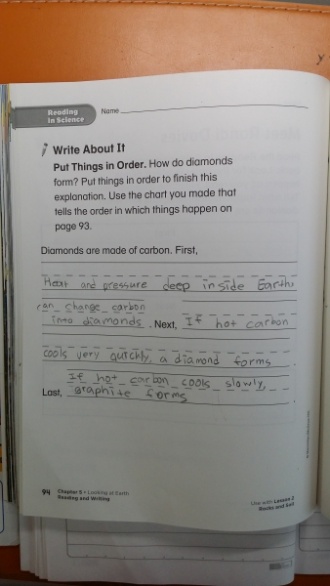 Reading
in Science
Name
Write About It
Put Things in Order. How do diamonds
form? Put things in order to finish this
explanation. Use the chart you made that
tells the order in which things happen on
page 93.
Diamonds are made of carbon. First,
Heat and pressure deep inside Earth
can change carbon
into diamonds. Next, If hot carbon
cools very quickly, a diamond forms
If hot carbon cools slowly,
Last, graphite forms
94 Chapter 5 • Looking at Earth
Reading and Writing
Use with Lesson 2
Rocks and Soil